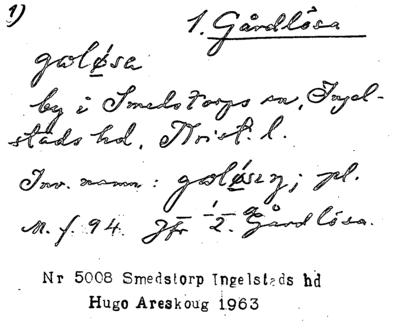 1)
1. Gårdlösa
gɷløsa
by i Smedstorps sn, Ingel-
stads hd, Krist. l.
Inv. namn: pl.
M. f. 94. Jfr 2. Gårdlösa.
Nr 5008 Smedstorp Ingelstads hd
Hugo Areskoug 1963